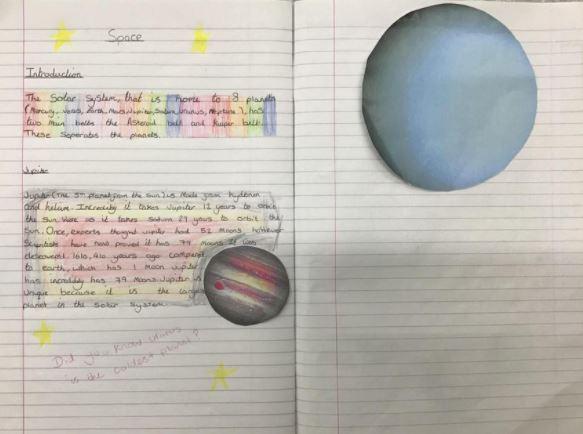 Space
Introduction
The Solar System, that is home to 8 planets
(Mercury, venus, Earth, Mars, Jupiter, Saturn, Uranus, Neptune), has
two main belts the Asteroid belt and Kuiper belt.
These seperates the planets.
Jupiter
Jupiter (The 5th planet from the sun) is Made from hydoren
and helium. Incredibly it takes Jupiter 12 years to orbit
the sun. Were as it takes Saturn 29 years to orbit the
Sun. Once, experts thought jupiter had 52 moons however
Scientists have now proved it has 79 moons. It was
descovered 1610, 410 years ago. Compared
to earth, which has 1 Moon Jupiter
has incredibly has 79 Moons. Jupiter is
unique because it is the largest
planet in the solar system.
Did you know uranus
is the coldest planet?